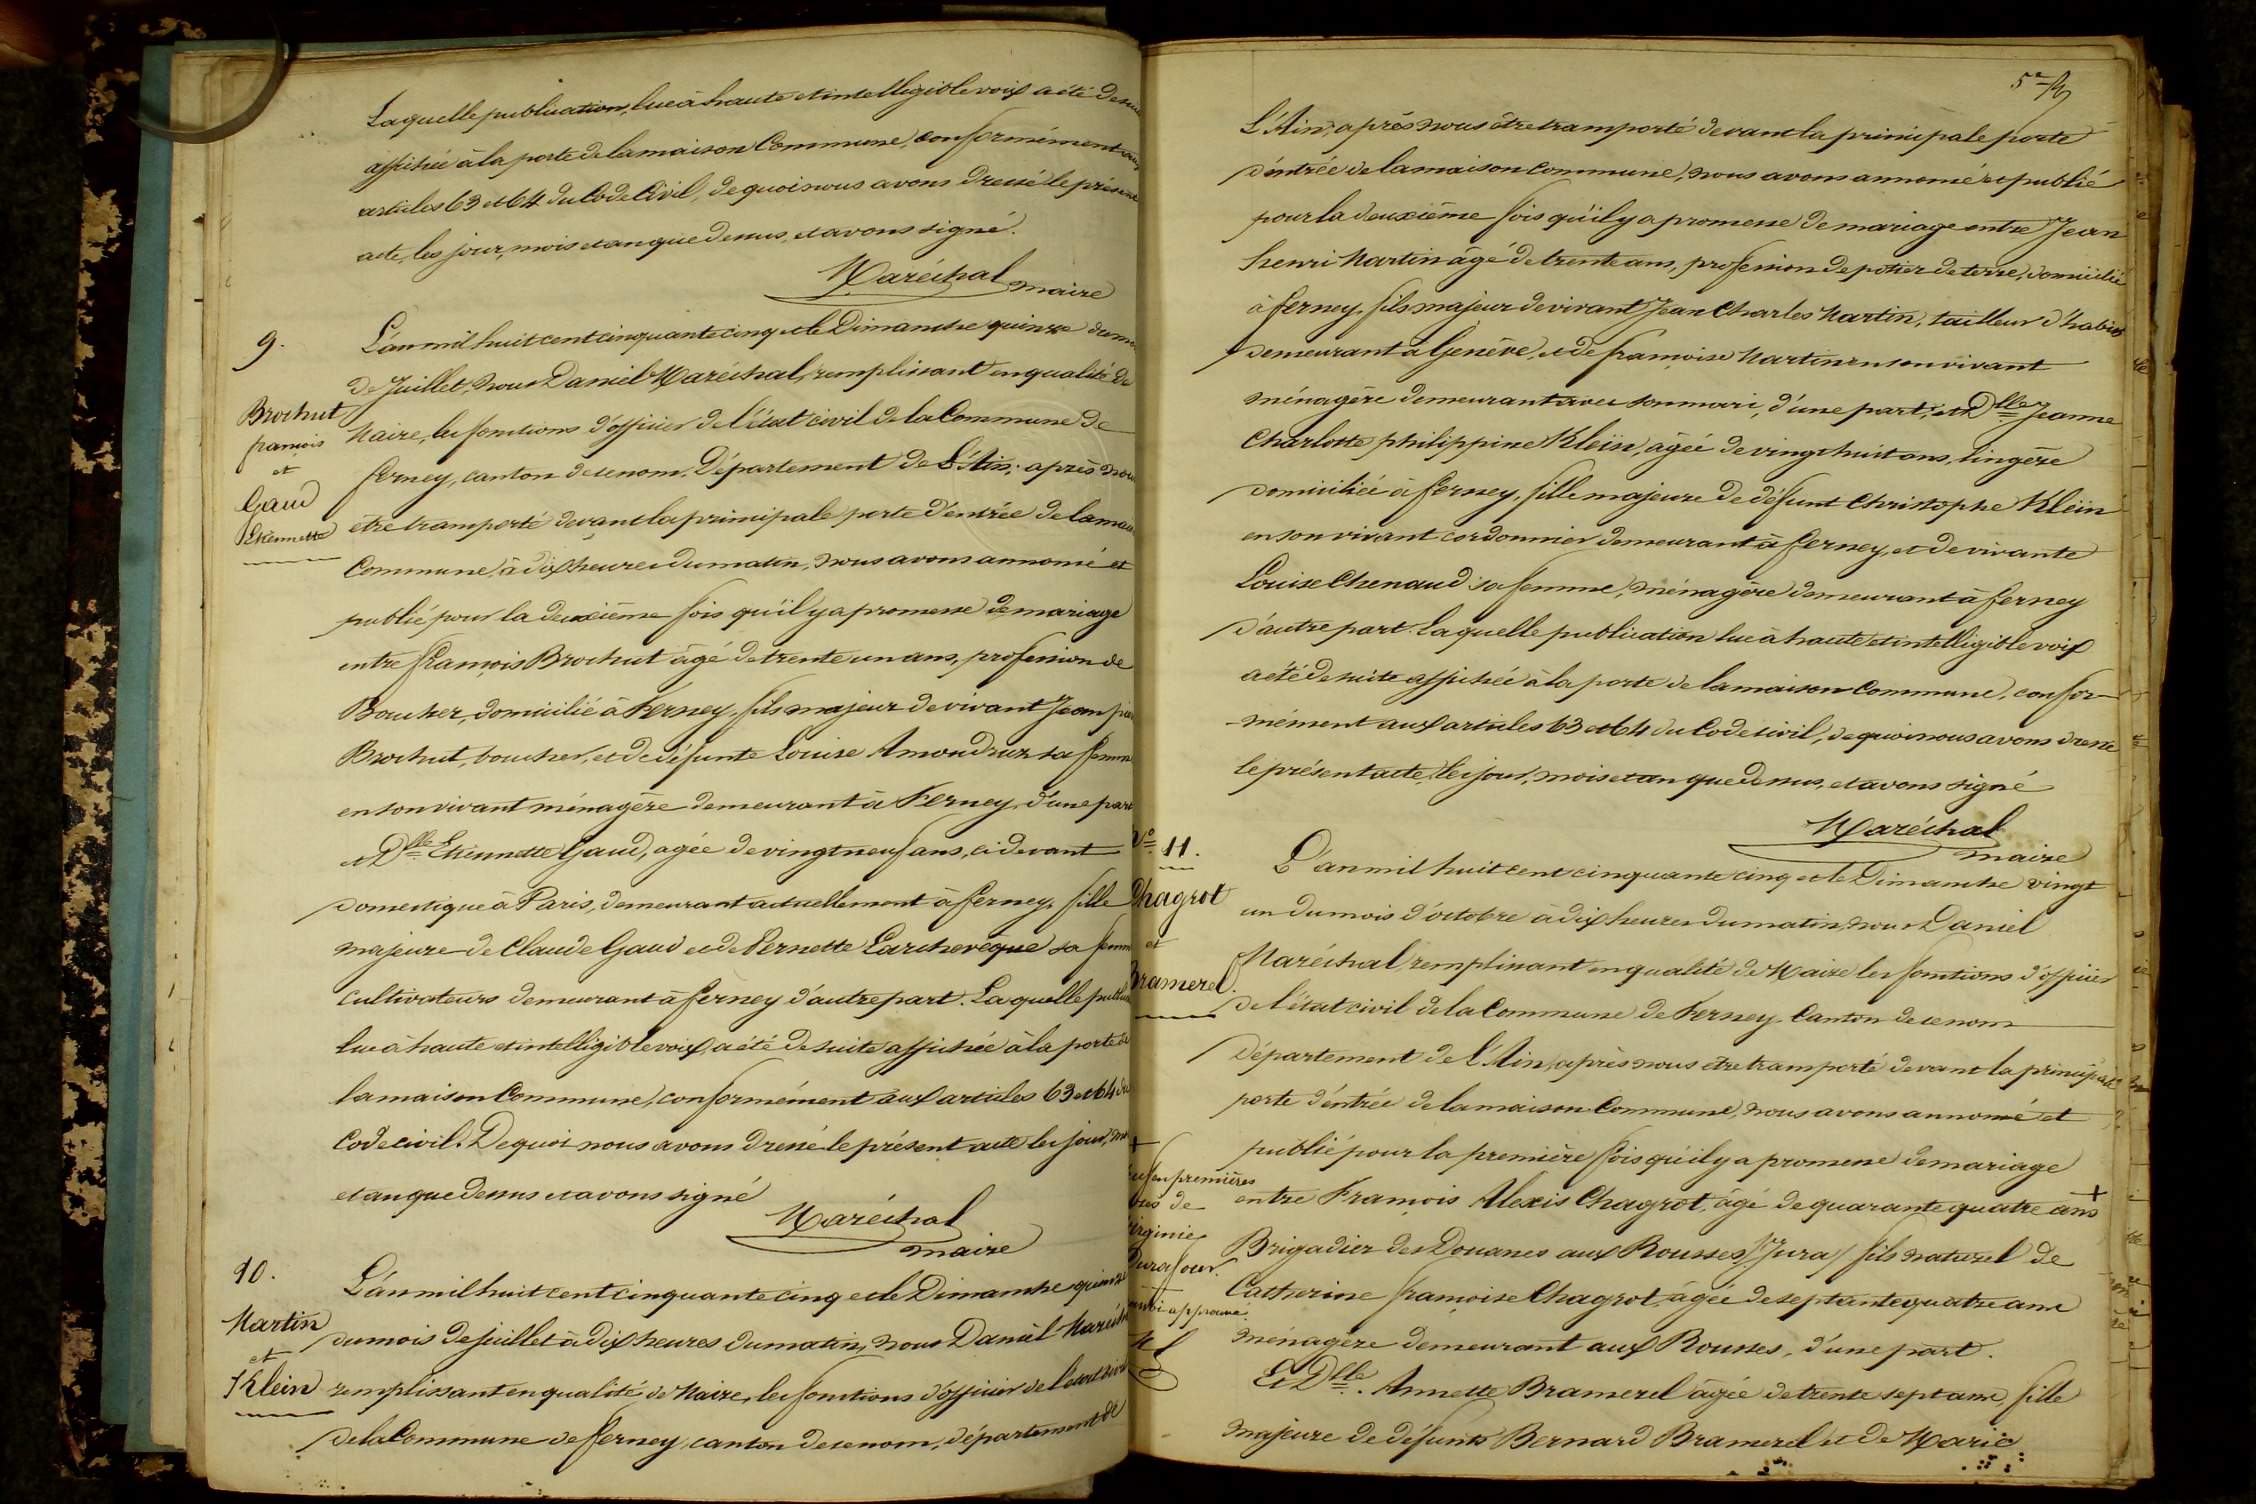 Laquelle publication, lue à haute et intelligible voix a été de suite
affichée à la porte de la maison Commune, conformément aux
articles 63 et 64 du Code Civil, de quoi nous avons dressé le présent
acte, les jour, mois et an que dessus, et avons signé.
Maréchal
maire
9.
Brochut
françois
et
Gaud
Etiennette
L'an mil huit cent cinquante cinq et le Dimanche quinze du mois
de Juillet, Nous Daniel Maréchal, remplissant en qualité de
Maire, les fonctions d'officier de l'état civil de la Commune de
ferney, canton de ce nom, Département de L'Ain; après nous
être transporté devant la principale porte d'entrée de la maison
Commune, à dix heures du matin, nous avons annoncé et
publié pour la deuxième fois qu'il y a promesse de mariage
entre françois Brochut âgé de trente un ans, profession de
Boucher, domicilié à Ferney, fils majeur de vivant Jean pierre
Brochut, boucher, et de défunte Louise Amoudruz sa femme
en son vivant ménagère demeurant à Ferney, d'une part
et Dlle Etiennette Gaud, agée de vingt neuf ans, ci devant
domestique à Paris, demeurant actuellement à ferney, fille
majeure de Claude Gaud et de Pernette Larchevêque sa femme
cultivateurs demeurant à ferney d'autre part. Laquelle publication
lue à haute et intelligible voix, a été de suite affichée à la porte de
la maison Commune, conformément aux articles 63 et 64 du
Code civil. De quoi nous avons dressé le présent acte les jour, mois
et an que dessus et avons signé
Maréchal
maire
10.
Martin
et
Klein
L'an mil huit cent cinquante cinq et le Dimanche quinze
du mois de juillet à dix heures du matin, nous Daniel Maréchal
remplissant en qualité de Maire, les fonctions d'officier de l'état civil
de la Commune de ferney, canton de ce nom, département de
L'Ain, après nous être transporté devant la principale porte
d'entrée de la maison commune, nous avons annoncé et publié
pour la deuxième fois qu'il y a promesse de mariage entre Jean
henri Martin âgé de trente ans, profession de potier de terre, domicilié
à ferney, fils majeur de vivant Jean Charles Martin, tailleur d'habits
demeurant à Genève, et de françoise Martin en son vivant
ménagère demeurant avec son mari, d'une part; et Dlle Jeanne
Charlotte philippine Klein, âgée de vingt huit ans, lingère
domiciliée à ferney, fille majeure de défunt Christophe Klein
en son vivant cordonnier demeurant à ferney, et de vivante
Louise Chenaud sa femme, ménagère demeurant à ferney
d'autre part. Laquelle publication lue à haute et intelligible voix
a été de suite affichée à la porte de la maison Commune, confor-
-mément aux articles 63 et 64 du Code civil, de quoi nous avons dressé
le présent acte, les jour, mois et an que dessus, et avons signé
Maréchal
maire
No 11.
Chagrot
et
Bramerel.
L'an mil huit cent cinquante cinq et le Dimanche vingt
un du mois d'octobre à dix heures du matin, nous Daniel
Maréchal, remplissant en qualité de Maire les fonctions d'officier
de l'état civil de la Commune de Ferney Canton de ce nom
Département de l'Ain, après nous être transporté devant la principale
porte d'entrée de la maison Commune, nous avons annoncé et
publié pour la première fois qu'il y a promesse de mariage
entre François Alexis Chagrot, âgé de quarante quatre ans +
Brigadier des Douanes aux Rousses (Jura) fils naturel de
Catherine françoise Chagrot, âgée de septante quatre ans
ménagère demeurant aux Rousses, d'une part.
Et Dlle. Annette Bramerel âgée de trente sept ans, fille
majeure de défunts Bernard Bramerel et de Marie
+
veuf en premières
noces de
Virginie
Durafour.
approuvé.